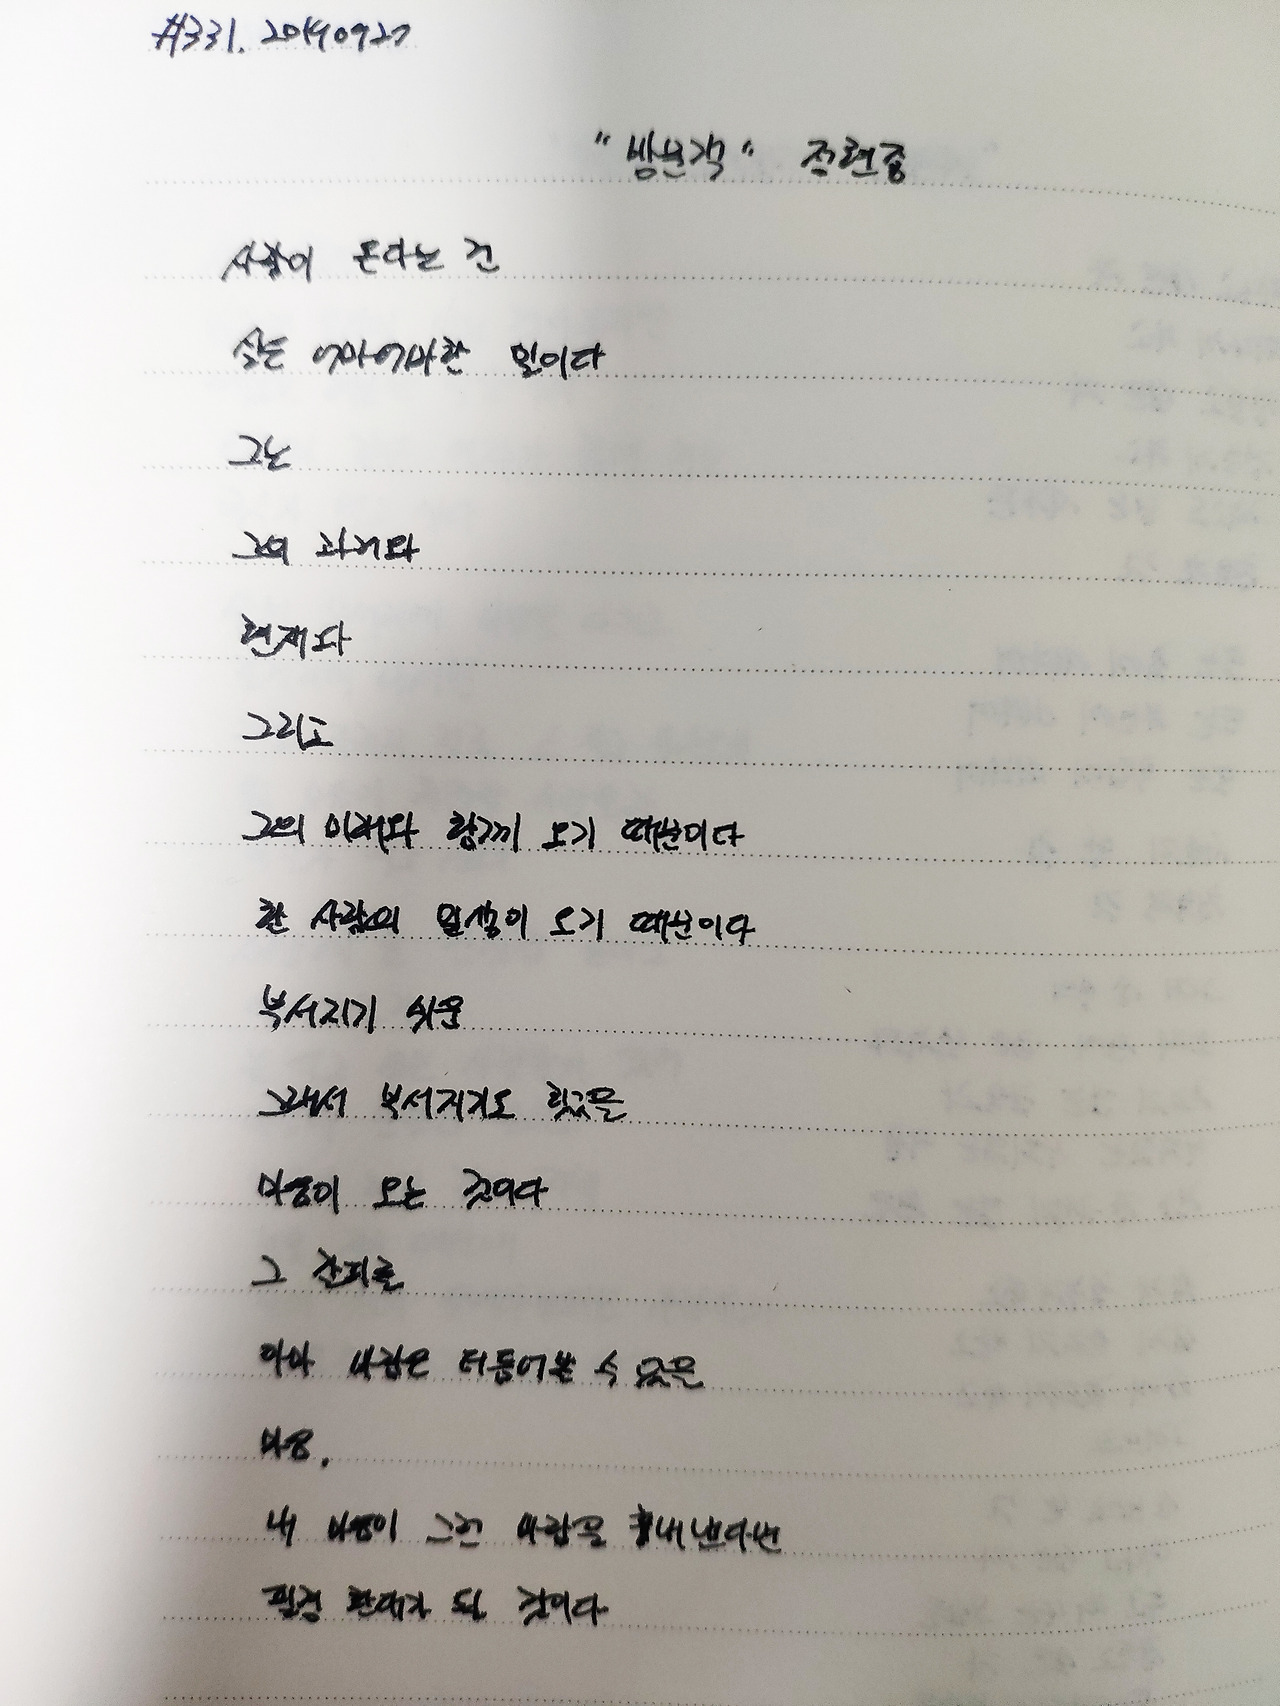 #331. 20190927
"방문객" 정현종
사람이 온다는 건
실은 어마어마한 일이다
그는
그의 과거와
현재와
그리고
그의 미래와 함께 오기 때문이다
한 사람의 일생이 오기 때문이다
부서지기 쉬운
그래서 부서지기도 했을
마음이 오는 것이다
그 갈피를
아마 바람은 더듬어볼 수 있을
마음.
내 마음이 그런 바람을 흉내낸다면
필경 환대가 될 것이다